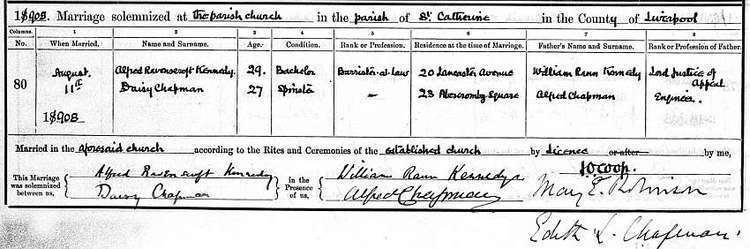 1908. Marriage solemnized at the parish church in the parish of St. Catherine in the County of Liverpool
Columns. 1 2 3 4 5 6 7 8
No. When Married. Name and Surname. Age. Condition. Rank or Profession. Residence at the time of Marriage. Father's Name and Surname. Rank or Profession of Father.
80 August 11th 1908 Alfred Ravenscroft Kennedy 29. Bachelor Barrister-at-law 20 Lancaster Avenue William Rann Kennedy Lord Justice of Appeal
Daisy Chapman 27 Spinster — 23 Abercromby Square Alfred Chapman Engineer.
Married in the aforesaid church according to the Rites and Ceremonies of the established church by licence or after by me,
This Marriage was solemnized between us, Alfred Ravenscroft Kennedy In the Presence of us, William Rann Kennedy
Daisy Chapman Alfred Chapman Mary E. Robinson
Edith L. Chapman